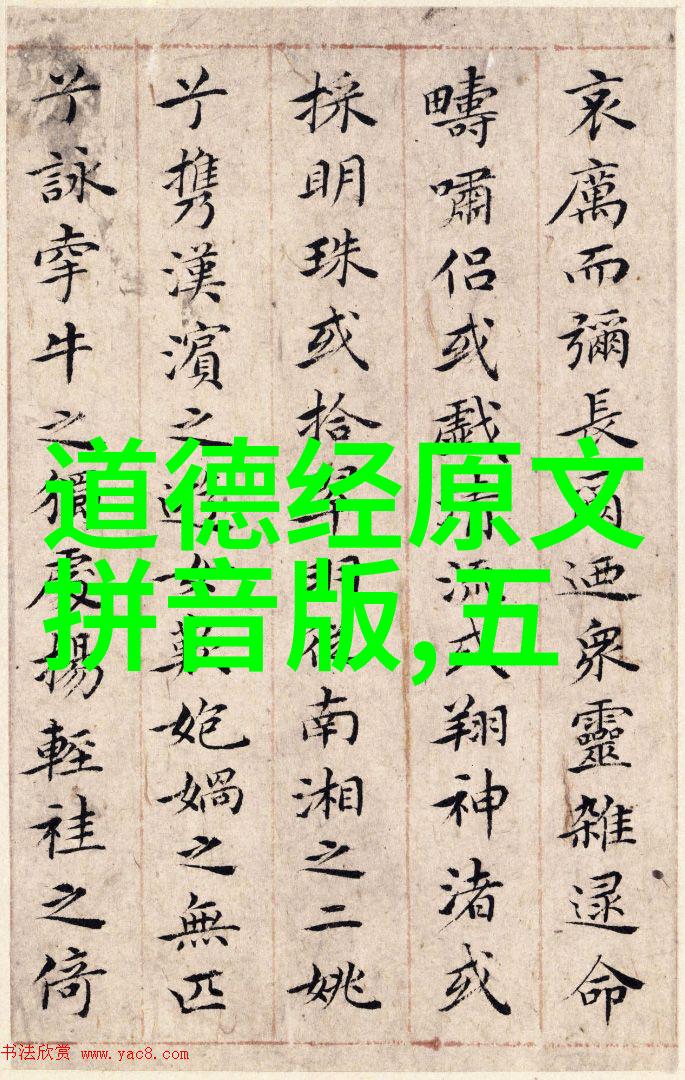 哀厲而彌長爾迺衆靈雜遝命
疇嘯侶或戲清流或翔神渚或
採明珠或拾翠羽從南湘之二姚
兮携漢濱之遊女媧之無匹
兮詠牽牛之獨處揚輕袿之倚
道德经原文
拼音版,五
书法欣赏 www.yac8.com